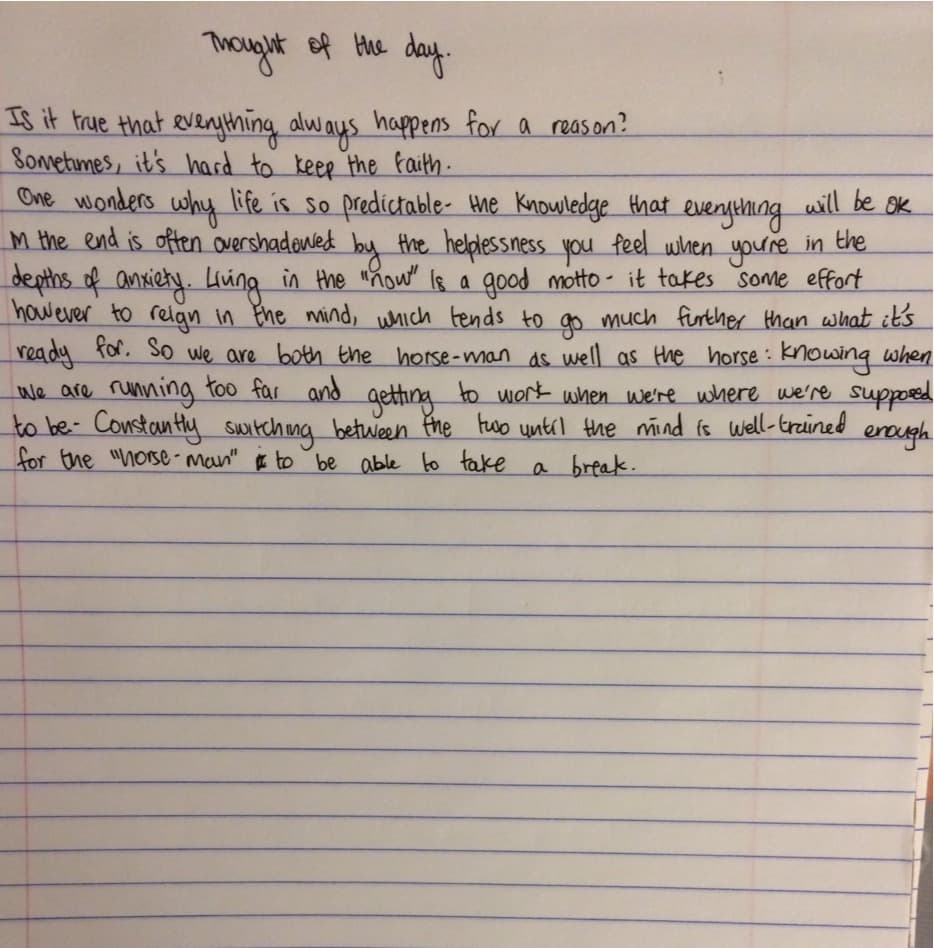 Thought of the day.
Is it true that everything always happens for a reason?
Sometimes, it's hard to keep the faith.
One wonders why life is so predictable- the knowledge that everything will be OK
in the end is often overshadowed by the helplessness you feel when you're in the
depths of anxiety. Living in the "now" is a good motto - it takes some effort
however to reign in the mind, which tends to go much further than what it's
ready for. So we are both the horse-man as well as the horse: knowing when
we are running too far and getting to work when we're where we're supposed
to be- Constantly switching between the two until the mind is well-trained enough
for the "horse-man" to be able to take a break.